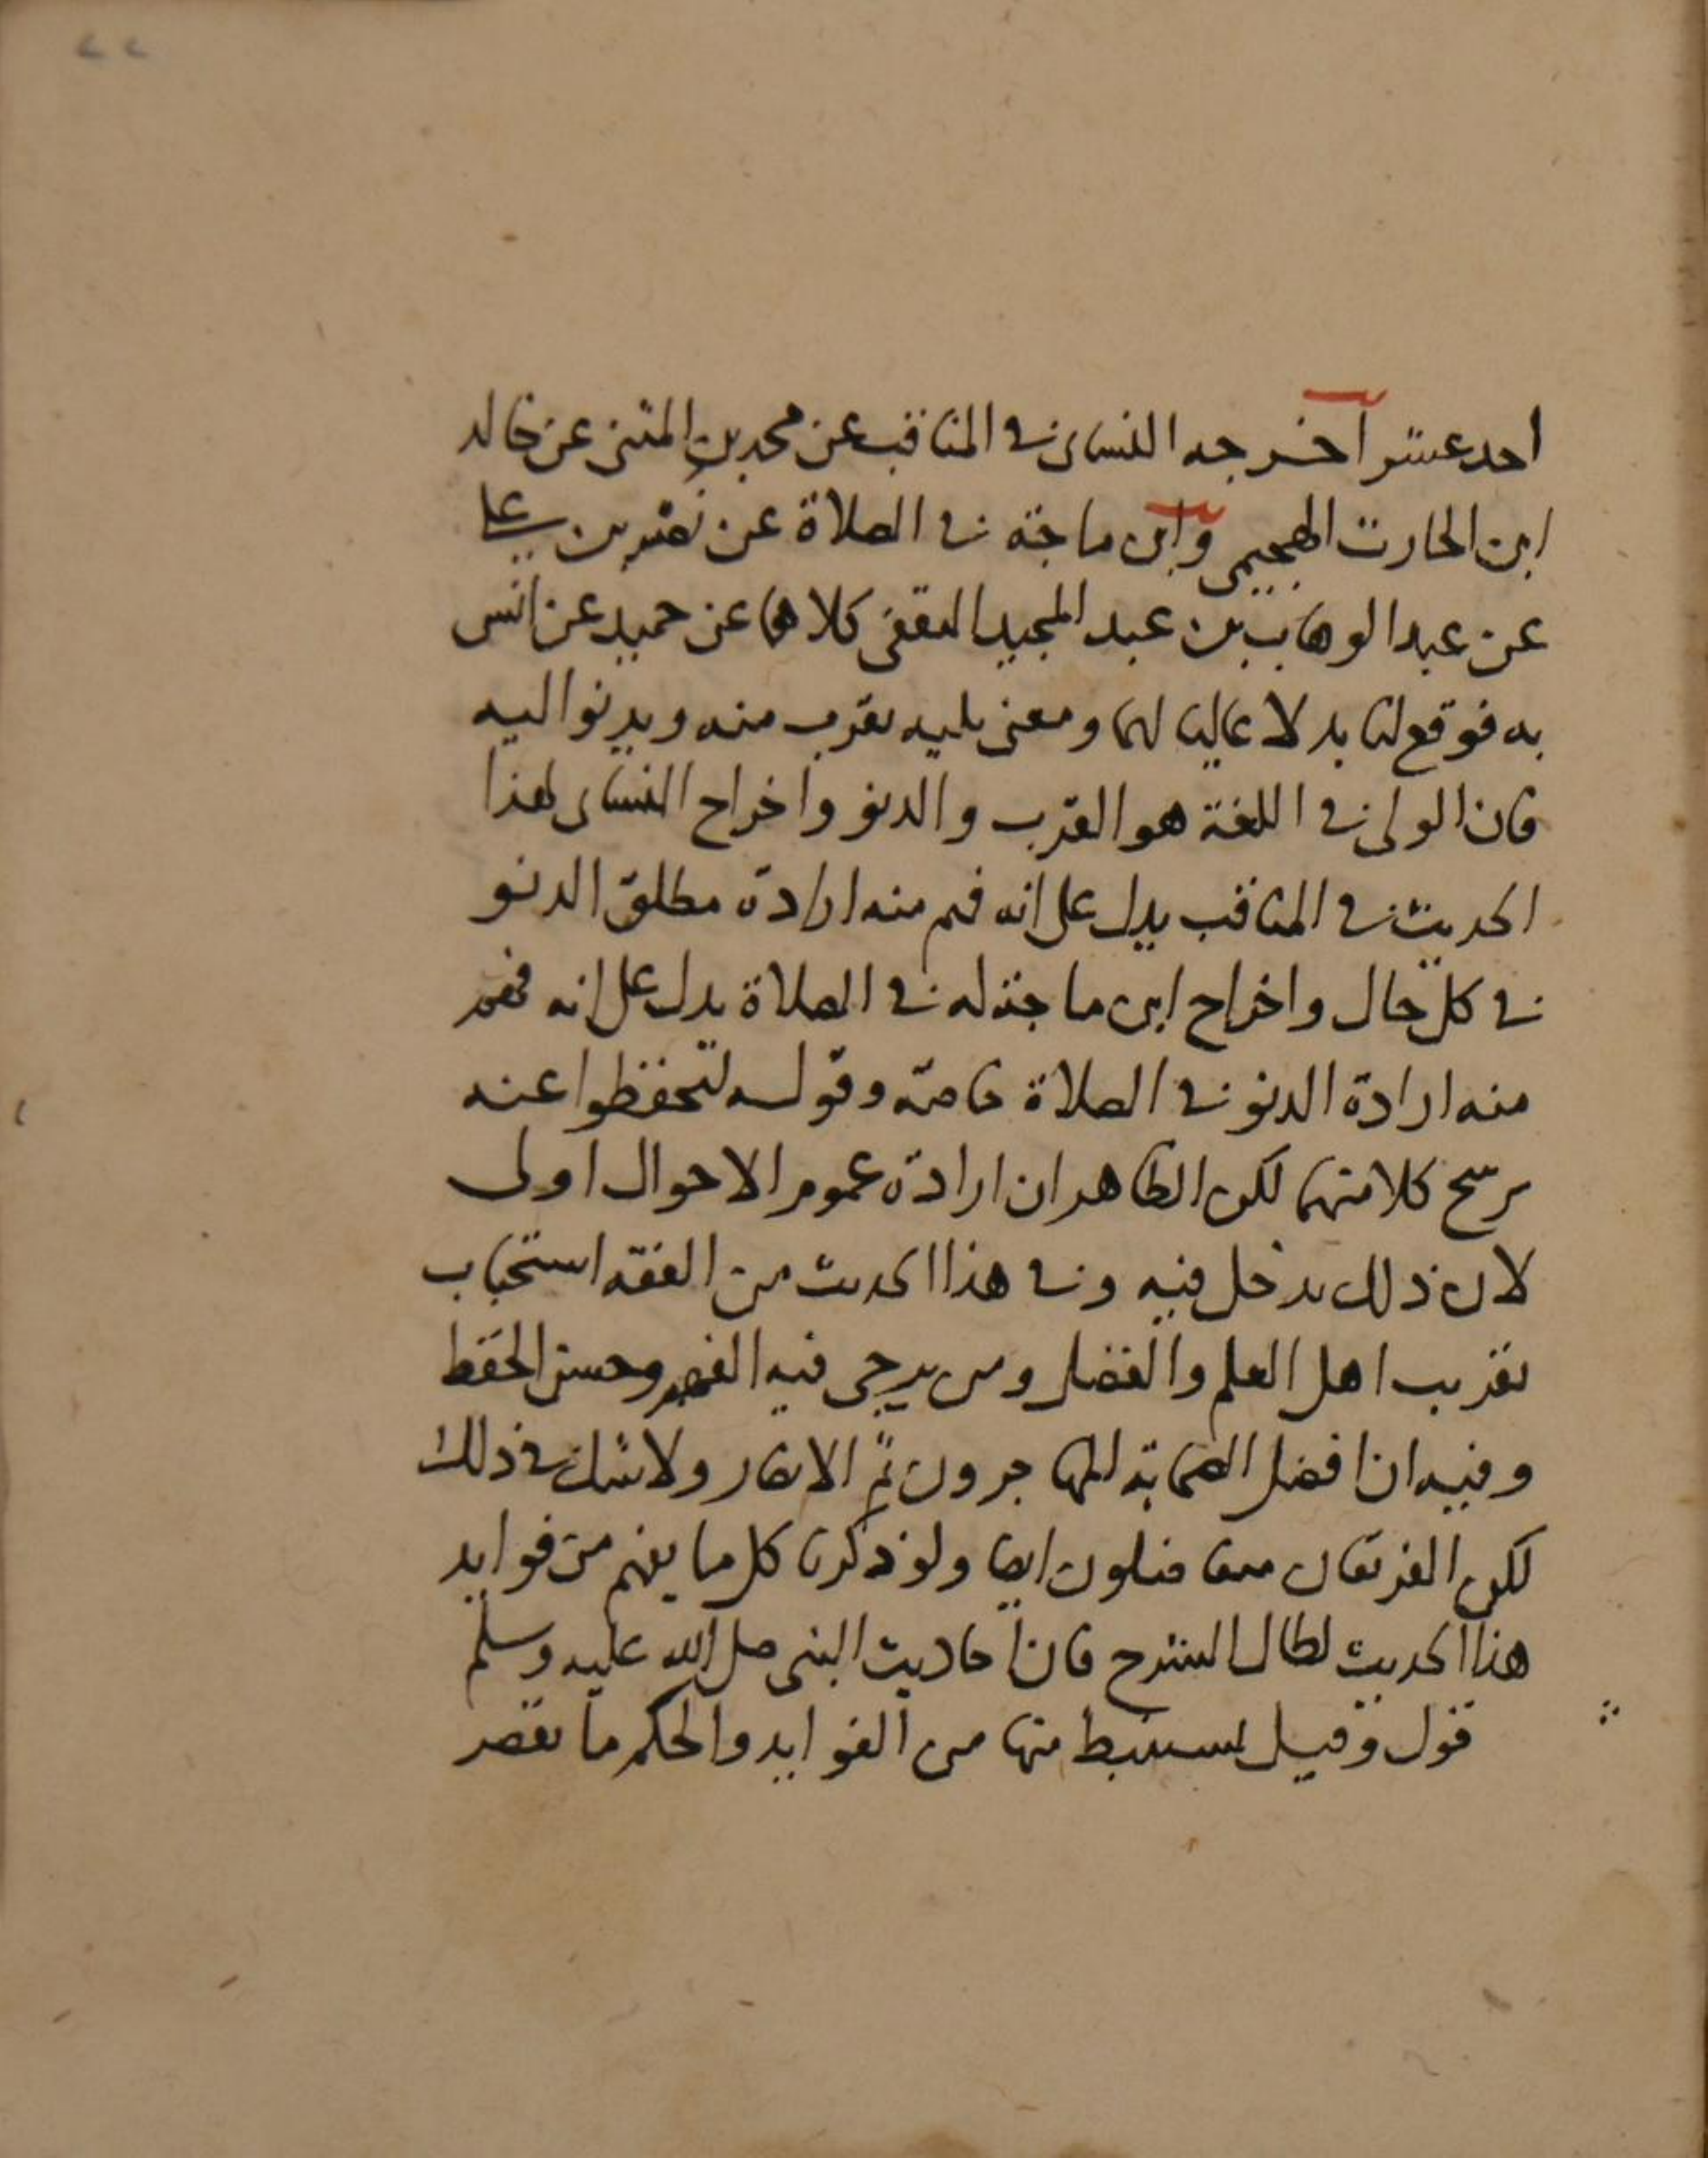 ٢٢
احد عشر اخرجه النساى في المناقب عن محمد بن المثنى عن خالد
ابن الحارث الهجيمي وابن ماجة في الصلاة عن نصر بن علي
عن عبد الوهاب بن عبد المجيد الثقفى كلاهما عن حميد عن انس
به فوقع لنا بدلا عاليا لهما ومعنى يليه يقرب منه ويدنوا اليه
فان الولى في اللغة هو القرب والدنو واخراج النساى لهذا
الحديث في المناقب يدل على انه فهم منه ارادة مطلق الدنو
في كل حال واخراج ابن ماجة له في الصلاة يدل على انه فهم
منه ارادة الدنو في الصلاة خاصة وقوله لتحفظوا عنه
يرشح كلا منهما لكن الظاهر ان ارادة عموم الاحوال اولى
لان ذلك يدخل فيه وفي هذا الحديث من الفقه استحباب
تقريب اهل العلم والفضل ومن يرجى فيه الفهم وحسن الحفظ
وفيه ان افضل الصحابة المهاجرون ثم الانصار ولا شك في ذلك
لكن الفريقان ايضا ولو ذكرنا كل ما يفهم من فوايد
هذا الحديث لطال الشرح فان احاديث النبى صلى الله عليه وسلم
قول وقيل يستنبط منها من الفوايد والحكم ما يقصر